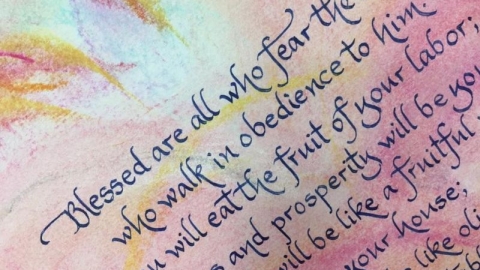 Blessed are all who fear the
who walk in obedience to him.
will eat the fruit of your labor;
and prosperity will be
will be like a fruitful
your house;
like